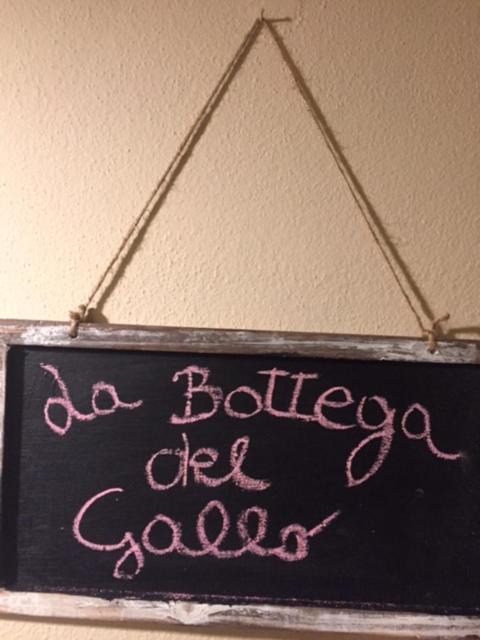 La Bottega
del
Gallo